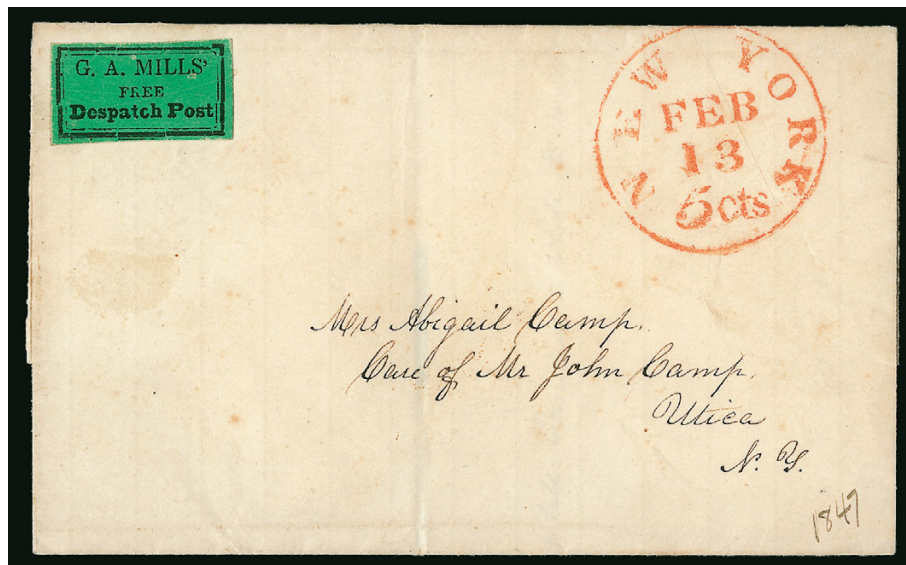 G. A. MILLS'
FREE
Despatch Post
NEW YORK
FEB
13
5 cts
Mrs Abigail Camp.
Care of Mr John Camp.
Utica
N. Y.
1847